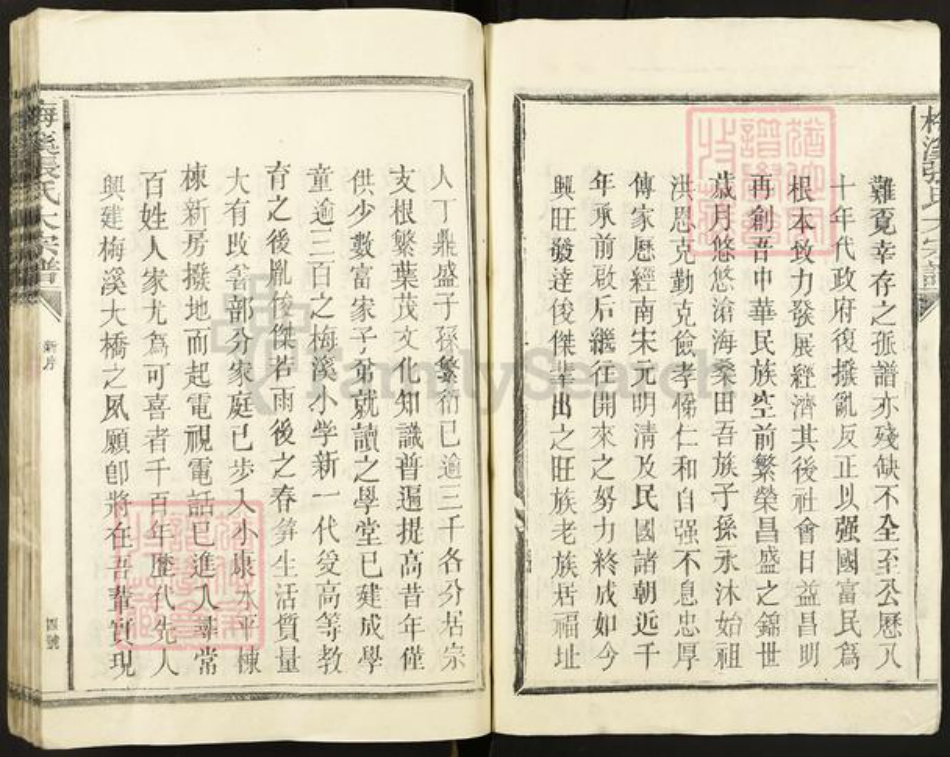 梅溪張氏大宗譜
難覓幸存之孤譜亦殘缺不全至公歷八
十年代政府復撥亂反正以强國富民為
根本致力發展經濟其後社會日益昌明
再創吾中華民族空前繁榮昌盛之錦世
歲月悠悠滄海桑田吾族子孫永沐始祖
洪恩克勤克儉孝悌仁和自强不息忠厚
傳家歷經南宋元明清及民國諸朝近千
年承前啟后繼往開來之努力終成如今
興旺發達俊傑輩出之旺族老族居福址
人丁鼎盛子孫繁衍已逾三千各分居宗
支根繁葉茂文化知識普遍提高昔年僅
供少數富家子弟就讀之學堂已建成學
童逾三百之梅溪小学新一代受高等教
育之後胤俊傑若雨後之春笋生活質量
大有改善部分家庭已步入小康水平棟
棟新房撥地而起電視電話已進入尋常
百姓人家尤為可喜者千百年歷代先人
興建梅溪大橋之夙願卽將在吾輩實現
梅溪張氏大宗譜
新序
四號
FamilySearch